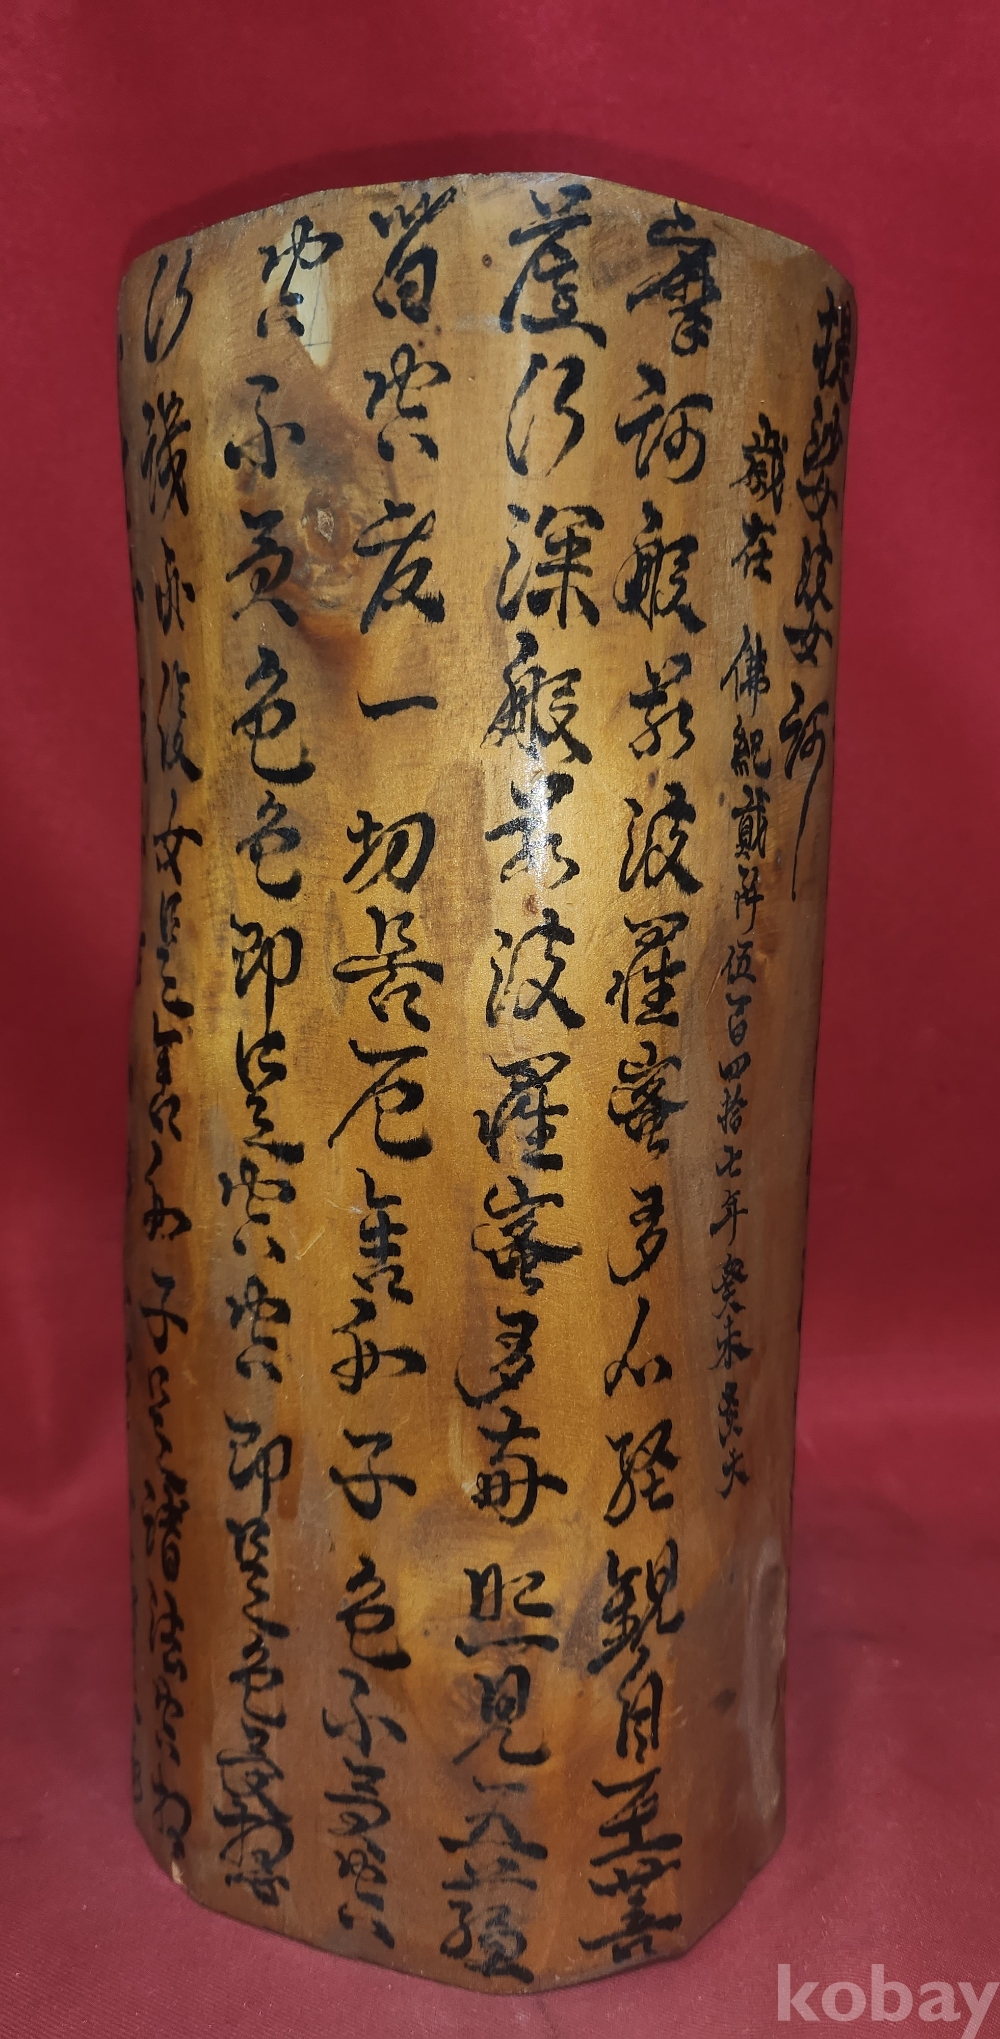 提娑婆訶
歲在 佛紀貳阡伍百四拾七年癸未
摩訶般若波羅蜜多心經觀自在菩
薩行深般若波羅蜜多時照見五蘊
皆空度一切苦厄舍利子色不異空
空不異色色即是空空即是色受想
行識亦復如是舍利子是諸法空
kobay